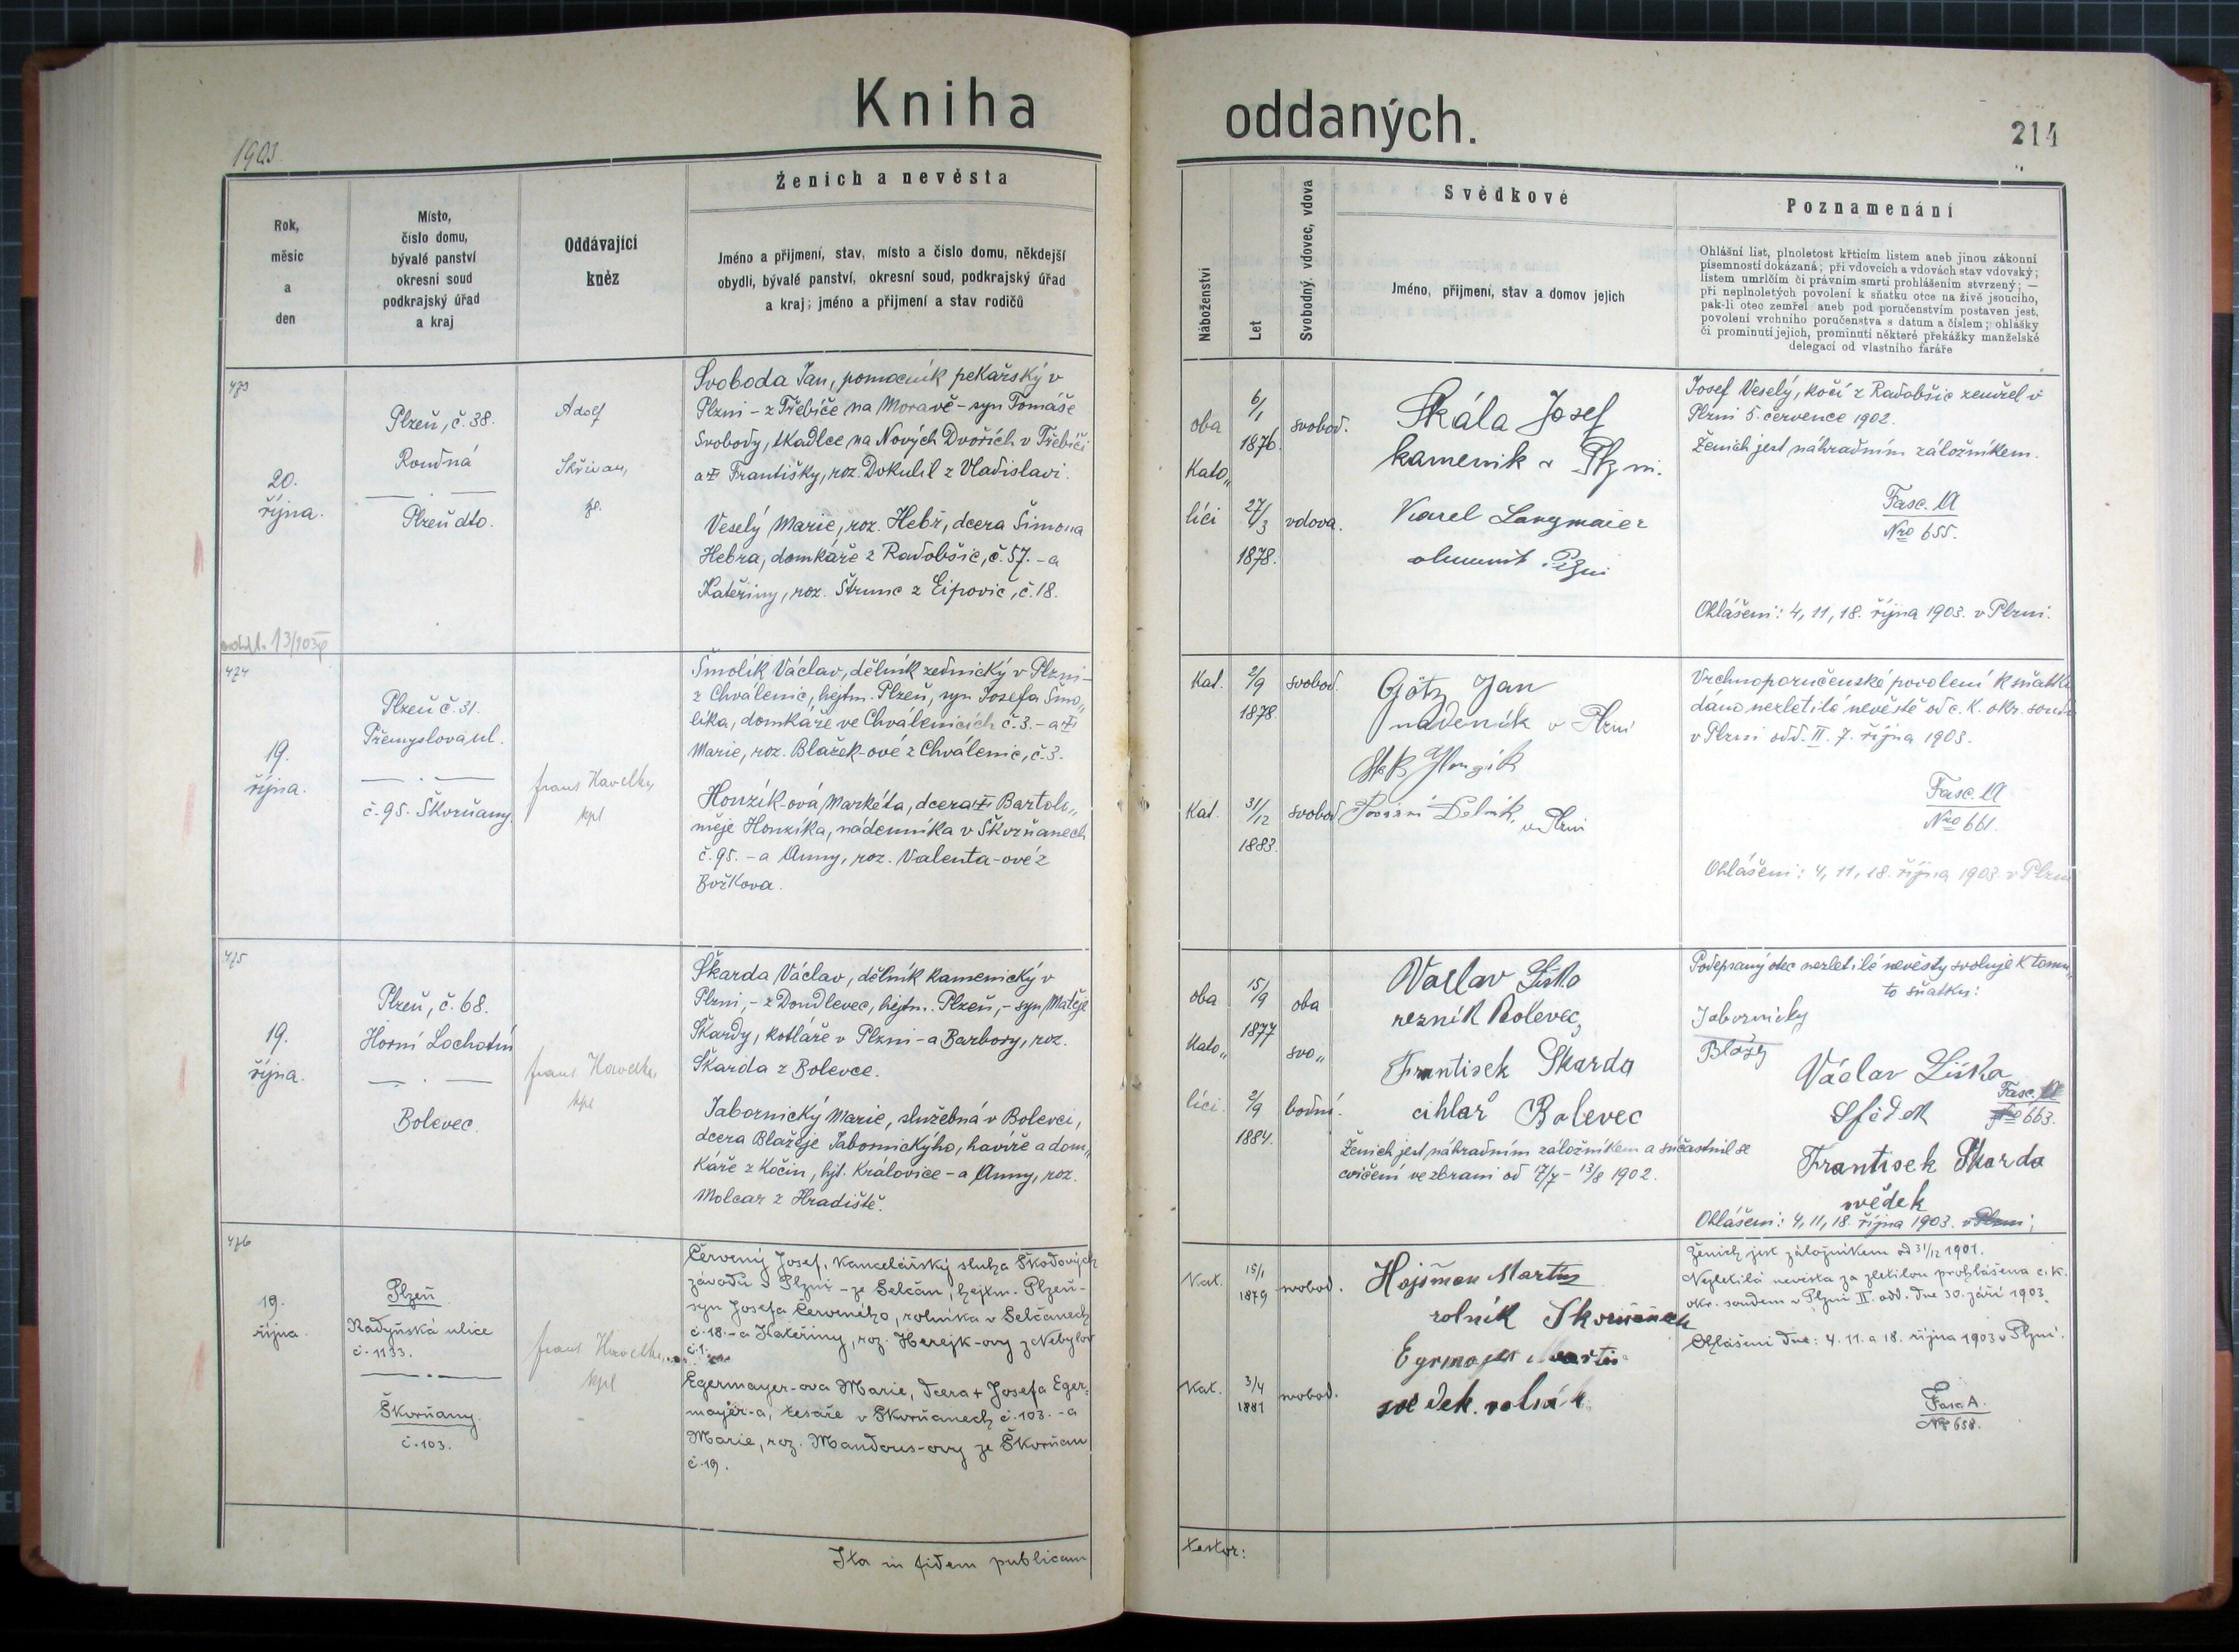 Kniha oddaných.
214
1903.
Rok,
měsíc
a
den
Místo,
číslo domu,
bývalé panství
okresní soud
podkrajský úřad
a kraj
Oddávající
kněz
Ženich a nevěsta
Jméno a přijmení, stav, místo a číslo domu, někdejší
obydlí, bývalé panství, okresní soud, podkrajský úřad
a kraj; jméno a přijmení a stav rodičů
Náboženství
Let
Svobodný, vdovec, vdova
Svědkové
Jméno, přijmení, stav a domov jejich
Poznamenání
Ohlášní list, plnoletost křticím listem aneb jinou zákonní
písemností dokázaná; při vdovcích a vdovách stav vdovský;
listem umrlčím či právním smrti prohlášením stvrzený; —
při neplnoletých povolení k sňatku otce na živě jsoucího,
pak-li otec zemřel aneb pod poručenstvím postaven jest,
povolení vrchního poručenstva s datum a číslem; ohlášky
či prominutí jejich, prominutí některé překážky manželské
delegací od vlastního faráře
473
20.
října.
Plzeň, č. 38.
Roudná
Plzeň dto.
Adolf
Skřivan,
Svoboda Jan, pomocník pekařský v
Plzni - z Třebíče na Moravě - syn Tomáše
Svobody, tkadlce na Nových Dvořích v Třebíči
a † Františky, roz. Dokulil z Vladislavi.
Veselý Marie, roz. Hebr, dcera Šimona
Hebra, domkáře z Radobšic, č. 57. - a
Kateřiny, roz. Štrunc z Ejpovic, č. 18.
oba
Kato„
líci
6/1
1876.
27/3
1878.
svobod.
vdova.
Skála Josef
kamenik v Plzni.
Karel Langmaier
Plzni
Josef Veselý, kočí z Radobšic zemřel v
Plzni 5. července 1902.
Ženich jest náhradním záložníkem.
Fasc. A
Nro 655.
Ohlášeni: 4, 11, 18. října 1903. v Plzni.
13/903
474
19.
října.
Plzeň č. 31.
Přemyslova ul.
č. 95. Škvrňany.
frant Havelka,
kpl
Šmolík Václav, dělník zednický v Plzni -
z Chválenic, hejtm. Plzeň, syn Josefa Šmo„
líka, domkáře ve Chválenicích č. 3. - a †
Marie, roz. Blažek-ové z Chválenic, č. 3.
Honzík-ová Markéta, dcera † Bartolo„
měje Honzíka, nádenníka v Škvrňanech
č. 95. - a Anny, roz. Valenta-ové z
Božkova.
Kat.
2/9
1878.
svobod.
Kat.
31/12
1883.
svobod
Götz Jan
nádeník v Plzni
Delník, v Plzni
Vrchnoporučenské povolení k sňatku
dáno nezletilé nevěstě od c. k. okr. soudu
v Plzni odd. II. 7. října 1903.
Fasc. A
Nro 661.
Ohlášeni: 4, 11, 18. října 1903. v Plzni
475
19.
října.
Plzeň, č. 68.
Horní Lochotín
Bolevec.
frant Havelka,
kpl
Škarda Václav, dělník kamenický v
Plzni, - z Doudlevec, hejtm. Plzeň, - syn Matěje
Škardy, kotláře v Plzni - a Barbory, roz.
Škarda z Bolevce.
Jabornický Marie, služebná v Bolevci,
dcera Blažeje Jabornického, havíře a dom„
káře z Kočin, hjt. Královice - a Anny, roz.
Molcar z Hradiště.
oba
Kato„
líci.
15/9
1877
2/9
1884.
oba
svo„
bodní.
Vaclav Liška
rezník Bolevec,
Frantisek Škarda
cihlař Bolevec
Ženich jest náhradním záložníkem a súčastnil se
cvičení ve zbrani od 17/7 - 13/8 1902.
Podepsaný otec nezletilé nevěsty svoluje k tomu„
to sňatku:
Jabornický
Blažej
Václav Liška
Sfědek
Fasc. A
Nro 663.
Frantisek Škarda
svědek
Ohlášeni: 4, 11, 18. října 1903. v Plzni;
476
19.
října.
Plzeň
Radyňská ulice
č. 1133.
Škvrňany.
č. 103.
frant Havelka,
kpl
Červený Josef, kancelářský sluha Škodových
závodů v Plzni - ze Selčan, hejtm. Plzeň -
syn Josefa Červeného, rolníka v Selčanech
č. 18. - a Kateřiny, roz. Herejk-ovy z Nebylov
č. 1.
Egermayer-ova Marie, dcera † Josefa Eger=
mayer-a, tesaře v Škvrňanech č. 103. - a
Marie, roz. Mandous-ovy ze Škvrňan
č. 19.
Kat.
15/1
1879
svobod.
Kat.
3/4
1881
svobod.
Hajšman Martin
rolník Skvrňanech
Egrmajer Martin
svědek. rolník.
Ženich jest záložníkem od 31/12 1901.
Nezletilá nevěsta za zletilou prohlášena c. k.
okr. soudem v Plzni II. odd. dne 30. září 1903.
Ohlášeni dne: 4. 11. a 18. října 1903 v Plzni.
Fasc. A.
Nro 658.
Ita in fidem publicam
testor: